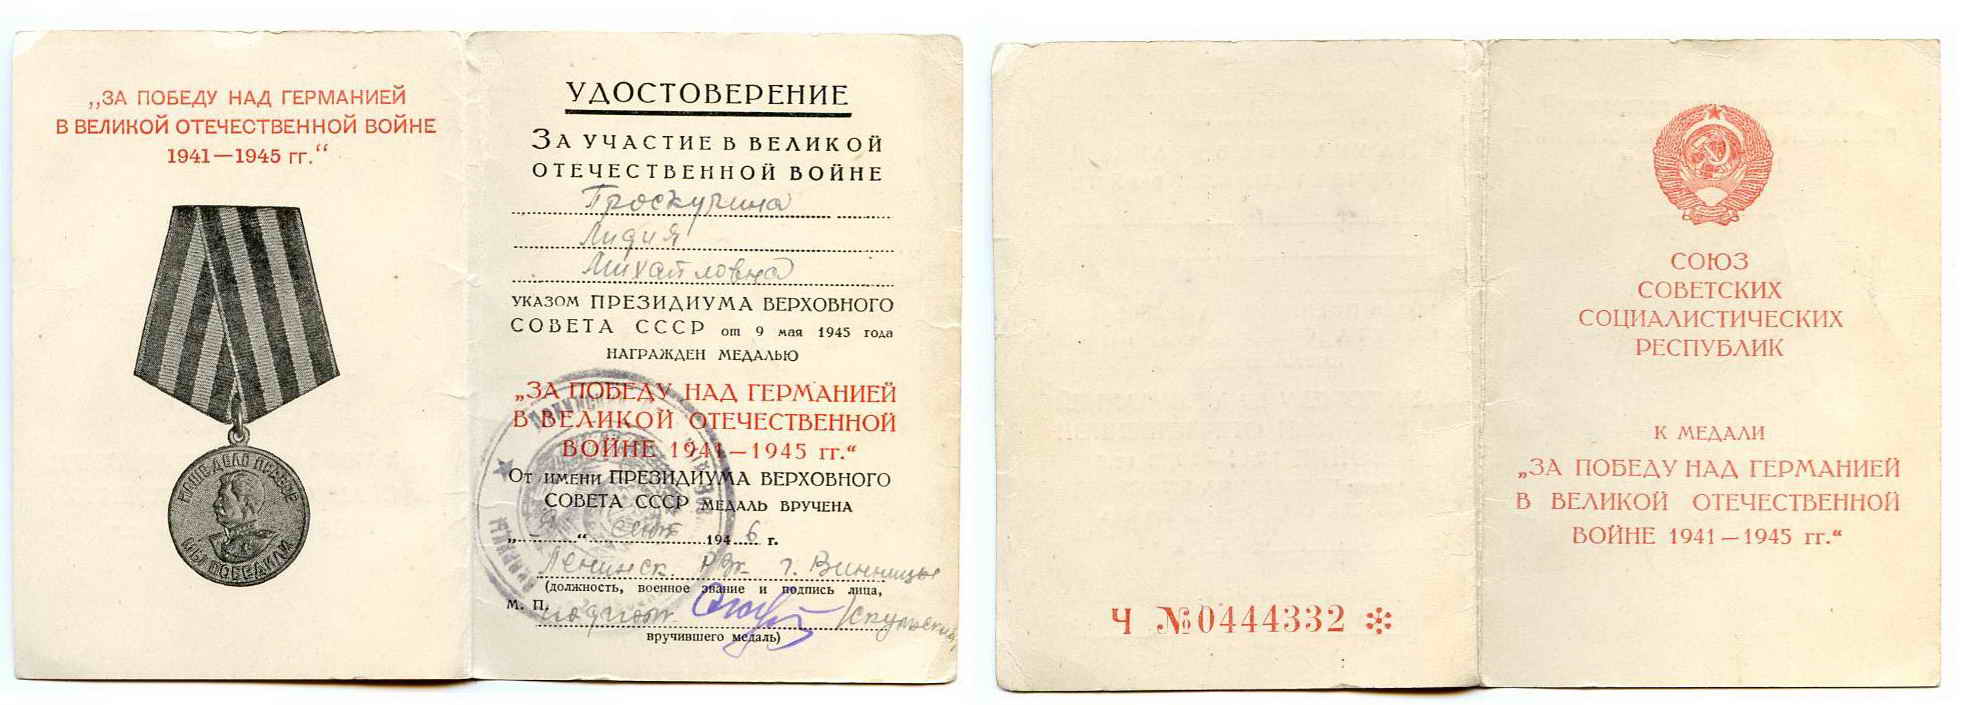 „ЗА ПОБЕДУ НАД ГЕРМАНИЕЙ
В ВЕЛИКОЙ ОТЕЧЕСТВЕННОЙ ВОЙНЕ
1941—1945 гг.“
НАШЕ ДЕЛО ПРАВОЕ
МЫ ПОБЕДИЛИ
УДОСТОВЕРЕНИЕ
ЗА УЧАСТИЕ В ВЕЛИКОЙ
ОТЕЧЕСТВЕННОЙ ВОЙНЕ
Проскурина
Лидия
Михайловна
УКАЗОМ ПРЕЗИДИУМА ВЕРХОВНОГО
СОВЕТА СССР от 9 мая 1945 года
НАГРАЖДЕН МЕДАЛЬЮ
„ЗА ПОБЕДУ НАД ГЕРМАНИЕЙ
В ВЕЛИКОЙ ОТЕЧЕСТВЕННОЙ
ВОЙНЕ 1941—1945 гг.“
От имени ПРЕЗИДИУМА ВЕРХОВНОГО
СОВЕТА СССР МЕДАЛЬ ВРУЧЕНА
„ “ 1946 г.
Ленинск. г. Винницы
(должность, военное звание и подпись лица,
М. П.
вручившего медаль)
СОЮЗ
СОВЕТСКИХ
СОЦИАЛИСТИЧЕСКИХ
РЕСПУБЛИК
К МЕДАЛИ
„ЗА ПОБЕДУ НАД ГЕРМАНИЕЙ
В ВЕЛИКОЙ ОТЕЧЕСТВЕННОЙ
ВОЙНЕ 1941—1945 гг.“
Ч №0444332 *